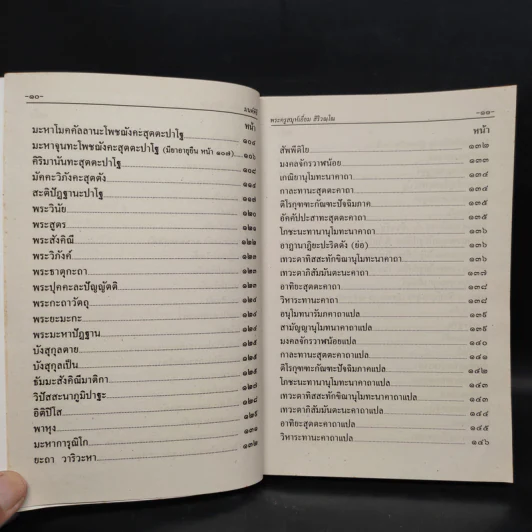 -๑๐-
มนต์พิธี
หน้า
มะหาโมคคัลลานะโพชฌังคะสุตตะปาโฐ ๑๐๔
มะหาจุนทะโพชฌังคะสุตตะปาโฐ (มีอายายุยืน หน้า ๑๐๗) ๑๐๖
คิริมานันทะสุตตะปาโฐ ๑๐๘
มัคคะวิภังคะสุตตัง ๑๑๔
สะติปัฏฐานะปาโฐ ๑๑๗
พระวินัย ๑๒๐
พระสูตร ๑๒๑
พระสังคิณี ๑๒๒
พระวิภังค์ ๑๒๓
พระธาตุกะถา ๑๒๓
พระปุคคะละปัญญัตติ ๑๒๓
พระกะถาวัตถุ ๑๒๔
พระยะมะกะ ๑๒๔
พระมะหาปัฏฐาน ๑๒๔
บังสุกุลตาย ๑๒๕
บังสุกุลเป็น ๑๒๕
ธัมมะสังคิณีมาติกา
วิปัสสะนาภูมิปาฐะ ๑๒๘
อิติปิโส ๑๒๙
พาหุง ๑๓๑
มะหาการุณิโก
ยะถา วาริวะหา ๑๓๒
พระครูสมุห์เอี่ยม สิริวณฺโณ
-๑๑-
หน้า
สัพพีติโย ๑๓๒
มงคลจักรวาฬน้อย ๑๓๓
เกณิยานุโมทะนาคาถา ๑๓๓
กาละทานะสุตตะคาถา ๑๓๔
ติโรกุฑฑะกัณฑะปัจฉิมภาค ๑๓๕
อัคคัปปะสาทะสุตตะคาถา ๑๓๕
โภชะนะทานานุโมทะนาคาถา ๑๓๖
อาฏานาฏิยะปะริตตัง (ย่อ) ๑๓๖
เทวะตาทิสสะทักขิณานุโมทะนาคาถา ๑๓๖
เทวะตาภิสัมมันตะนะคาถา ๑๓๗
อาทิยะสุตตะคาถา ๑๓๘
วิหาระทานะคาถา ๑๓๘
อนุโมทนารัมภคาถาแปล ๑๓๙
สามัญญานุโมทนาคาถาแปล ๑๓๙
มงคลจักรวาฬน้อยแปล ๑๔๐
กาละทานะสุตตะคาถาแปล ๑๔๑
ติโรกุฑฑะกัณฑะปัจฉิมภาคแปล ๑๔๒
โภชะนะทานานุโมทะนาคาถาแปล ๑๔๓
เทวะตาทิสสะทักขิณานุโมทะนาคาถาแปล ๑๔๓
เทวะตาภิสัมมันตะนะคาถาแปล ๑๔๔
อาทิยะสุตตะคาถาแปล ๑๔๕
วิหาระทานะคาถาแปล ๑๔๖